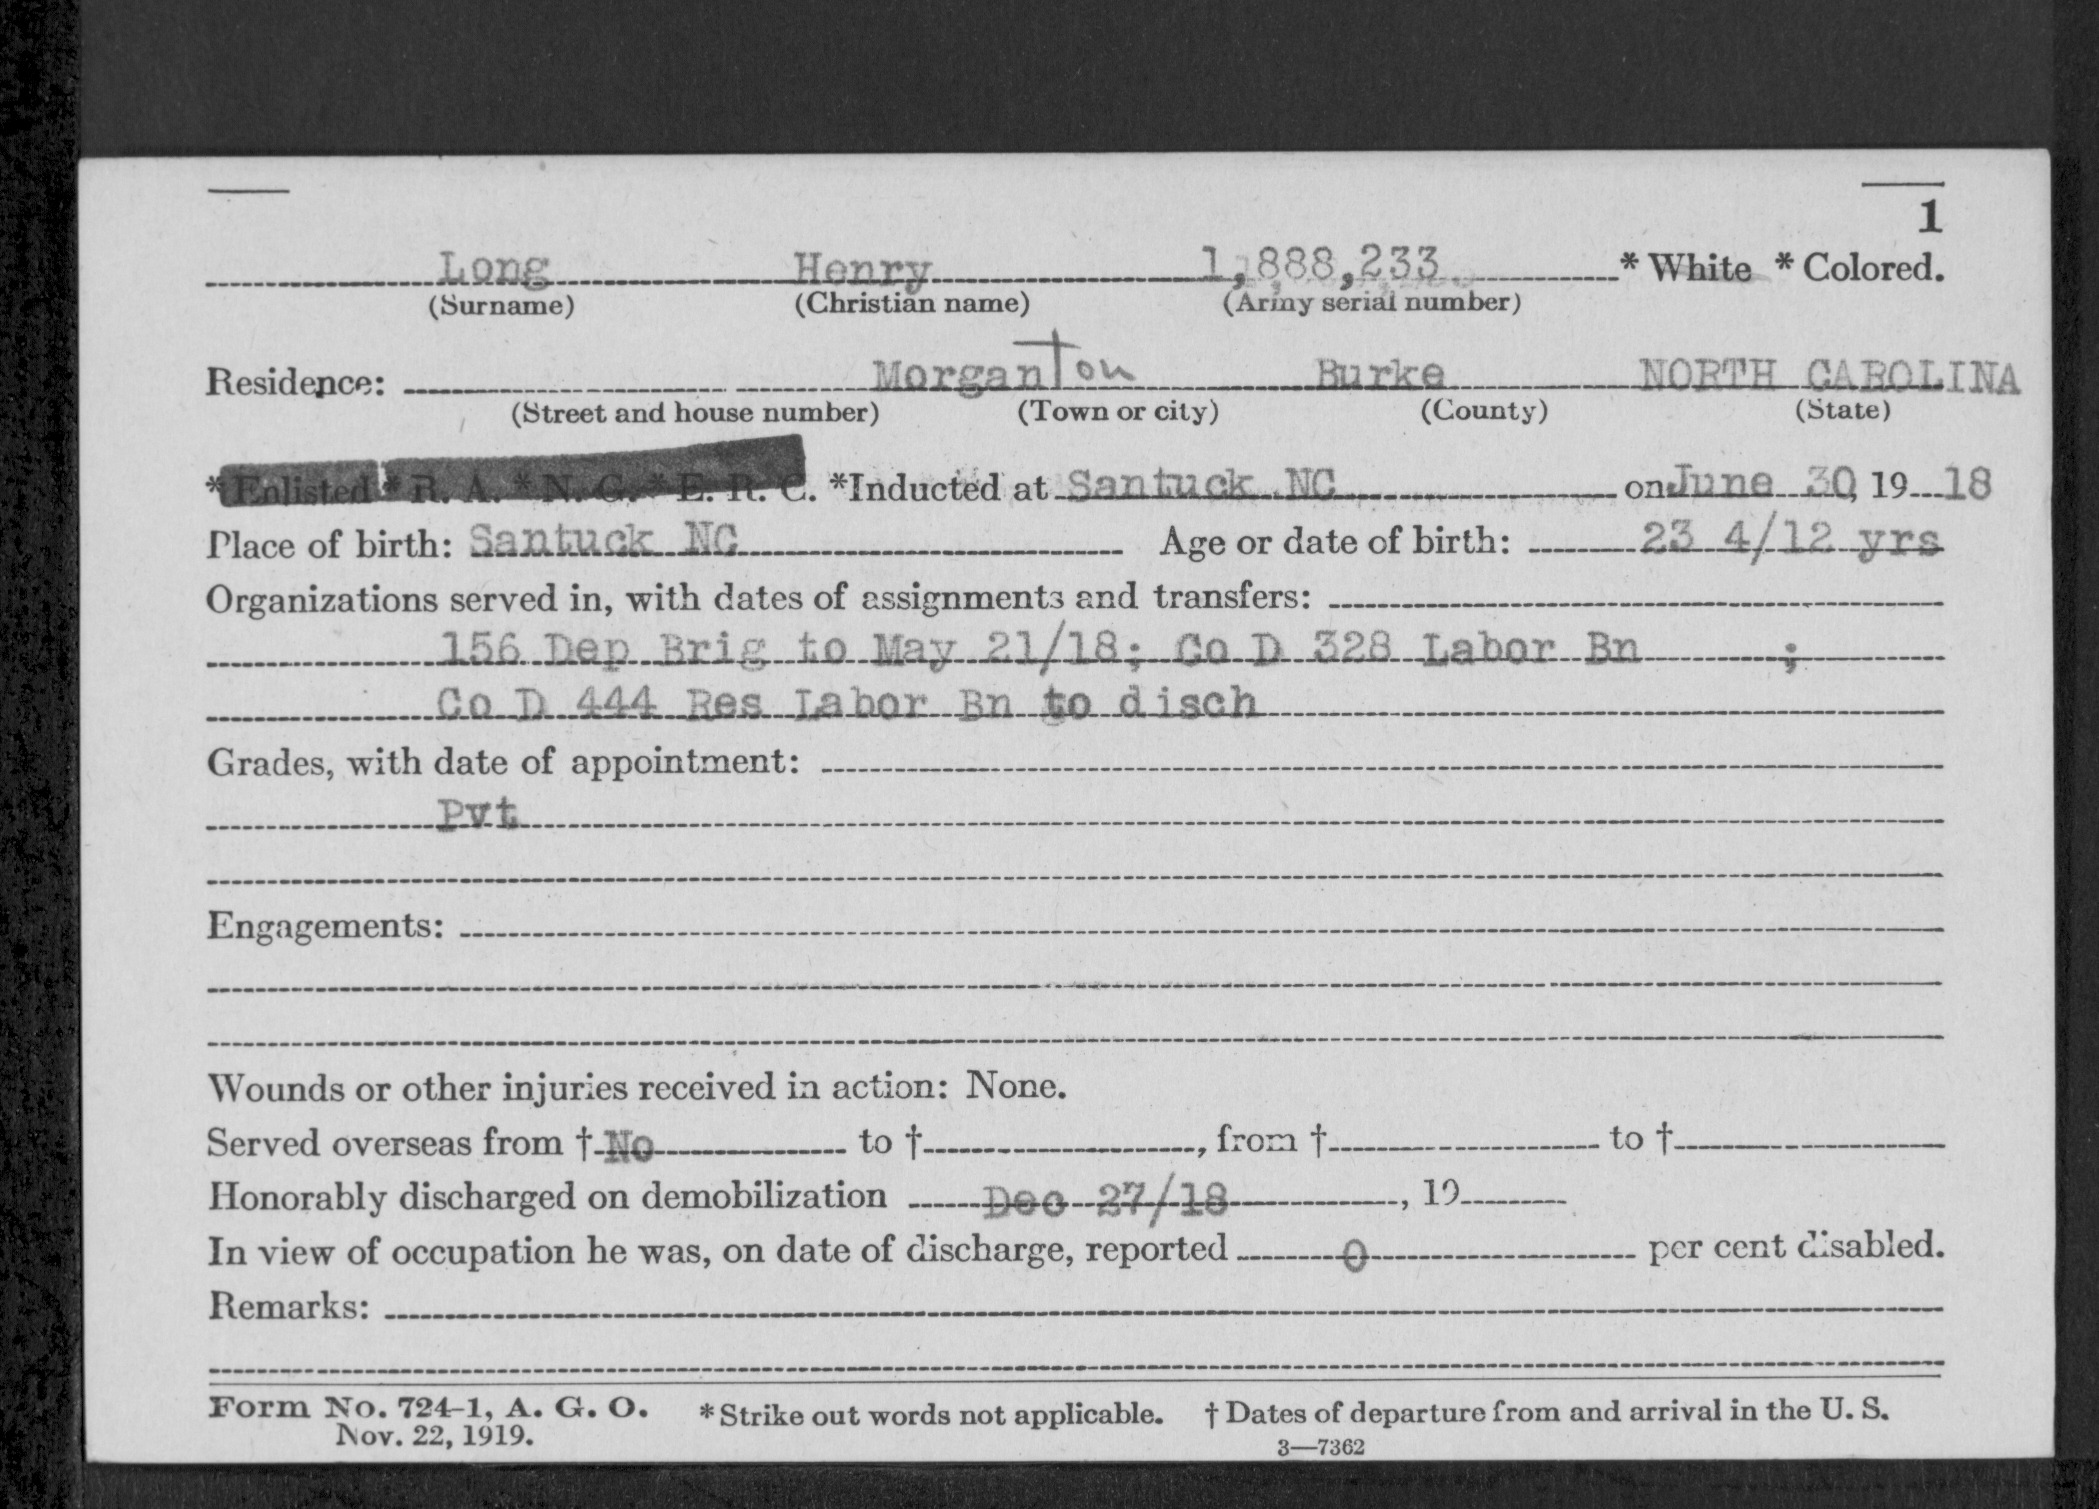 1
Long Henry 1,888,233 * White * Colored.
(Surname) (Christian name) (Army serial number)
Residence: Morganton Burke NORTH CAROLINA
(Street and house number) (Town or city) (County) (State)
*Enlisted * R. A. * N. G. * E. R. C. *Inducted at Santuck NC on June 30, 19 18
Place of birth: Santuck NC Age or date of birth: 23 4/12 yrs
Organizations served in, with dates of assignments and transfers:
156 Dep Brig to May 21/18; Co D 328 Labor Bn ;
Co D 444 Res Labor Bn to disch
Grades, with date of appointment:
Pvt
Engagements:
Wounds or other injuries received in action: None.
Served overseas from † No to †, from † to †
Honorably discharged on demobilization Dec 27/18, 19
In view of occupation he was, on date of discharge, reported 0 per cent disabled.
Remarks:
Form No. 724-1, A. G. O. * Strike out words not applicable. † Dates of departure from and arrival in the U. S.
Nov. 22, 1919.
3—7362